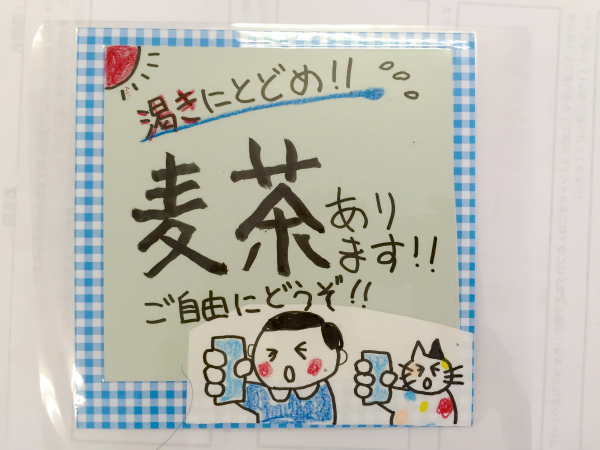 渇きにとどめ!!
麦茶あります!!
ご自由にどうぞ!!